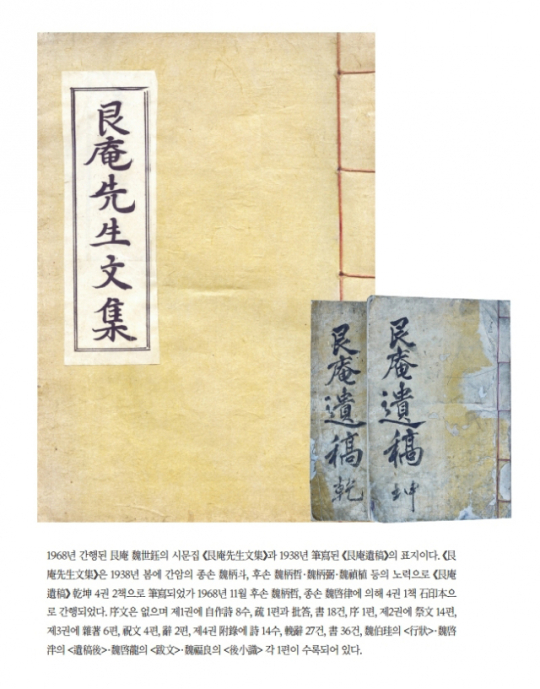 艮庵先生文集
艮庵遺稿 乾
艮庵遺稿 坤
1968년 간행된 艮庵 魏世鈺의 시문집 《艮庵先生文集》과 1938년 筆寫된 《艮庵遺稿》의 표지이다. 《艮
庵先生文集》은 1938년 봄에 간암의 종손 魏柄斗, 후손 魏柄哲·魏柄弼·魏禎植 등의 노력으로 《艮庵
遺稿》 乾坤 4권 2책으로 筆寫되었가 1968년 11월 후손 魏柄哲, 종손 魏啓律에 의해 4권 1책 石印本으
로 간행되었다. 序文은 없으며 제1권에 自作詩 8수, 疏 1편과 批答, 書 18건, 序 1편, 제2권에 祭文 14편,
제3권에 雜著 6편, 祝文 4편, 辭 2편, 제4권 附錄에 詩 14수, 輓辭 27건, 書 36건, 魏伯珪의 <行狀>·魏啓
泮의 <遺稿後>·魏啓龍의 <跋文>·魏福良의 <後小識> 각 1편이 수록되어 있다.